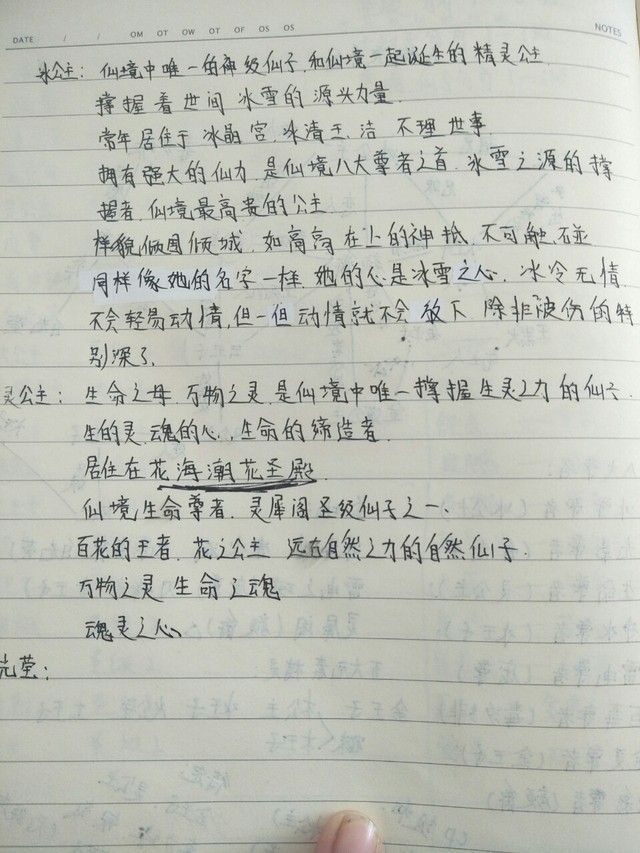 DATE / / OM OT OW OT OF OS OS NOTES
冰公主：仙境中唯一的神级仙子，和仙境一起诞生的精灵公主
撑握着世间冰雪的源头力量.
常年居住于冰晶宫，冰清玉洁 不理世事.
拥有强大的仙力，是仙境八大尊者之首，冰雪之源的撑
握者，仙境最高贵的公主.
样貌倾国倾城，如高高在上的神祗，不可触碰
同样像她的名字一样，她的心是冰雪之心，冰冷无情.
不会轻易动情，但一但动情就不会放下 除非被伤的特
别深了.
灵公主：生命之母，万物之灵，是仙境中唯一撑握生灵之力的仙子.
生的灵，魂的心，生命的缔造者.
居住在花海潮花圣殿.
仙境生命尊者，灵犀阁圣级仙子之一.
百花的王者，花之公主 远古自然之力的自然仙子.
万物之灵 生命之魂
魂灵之心